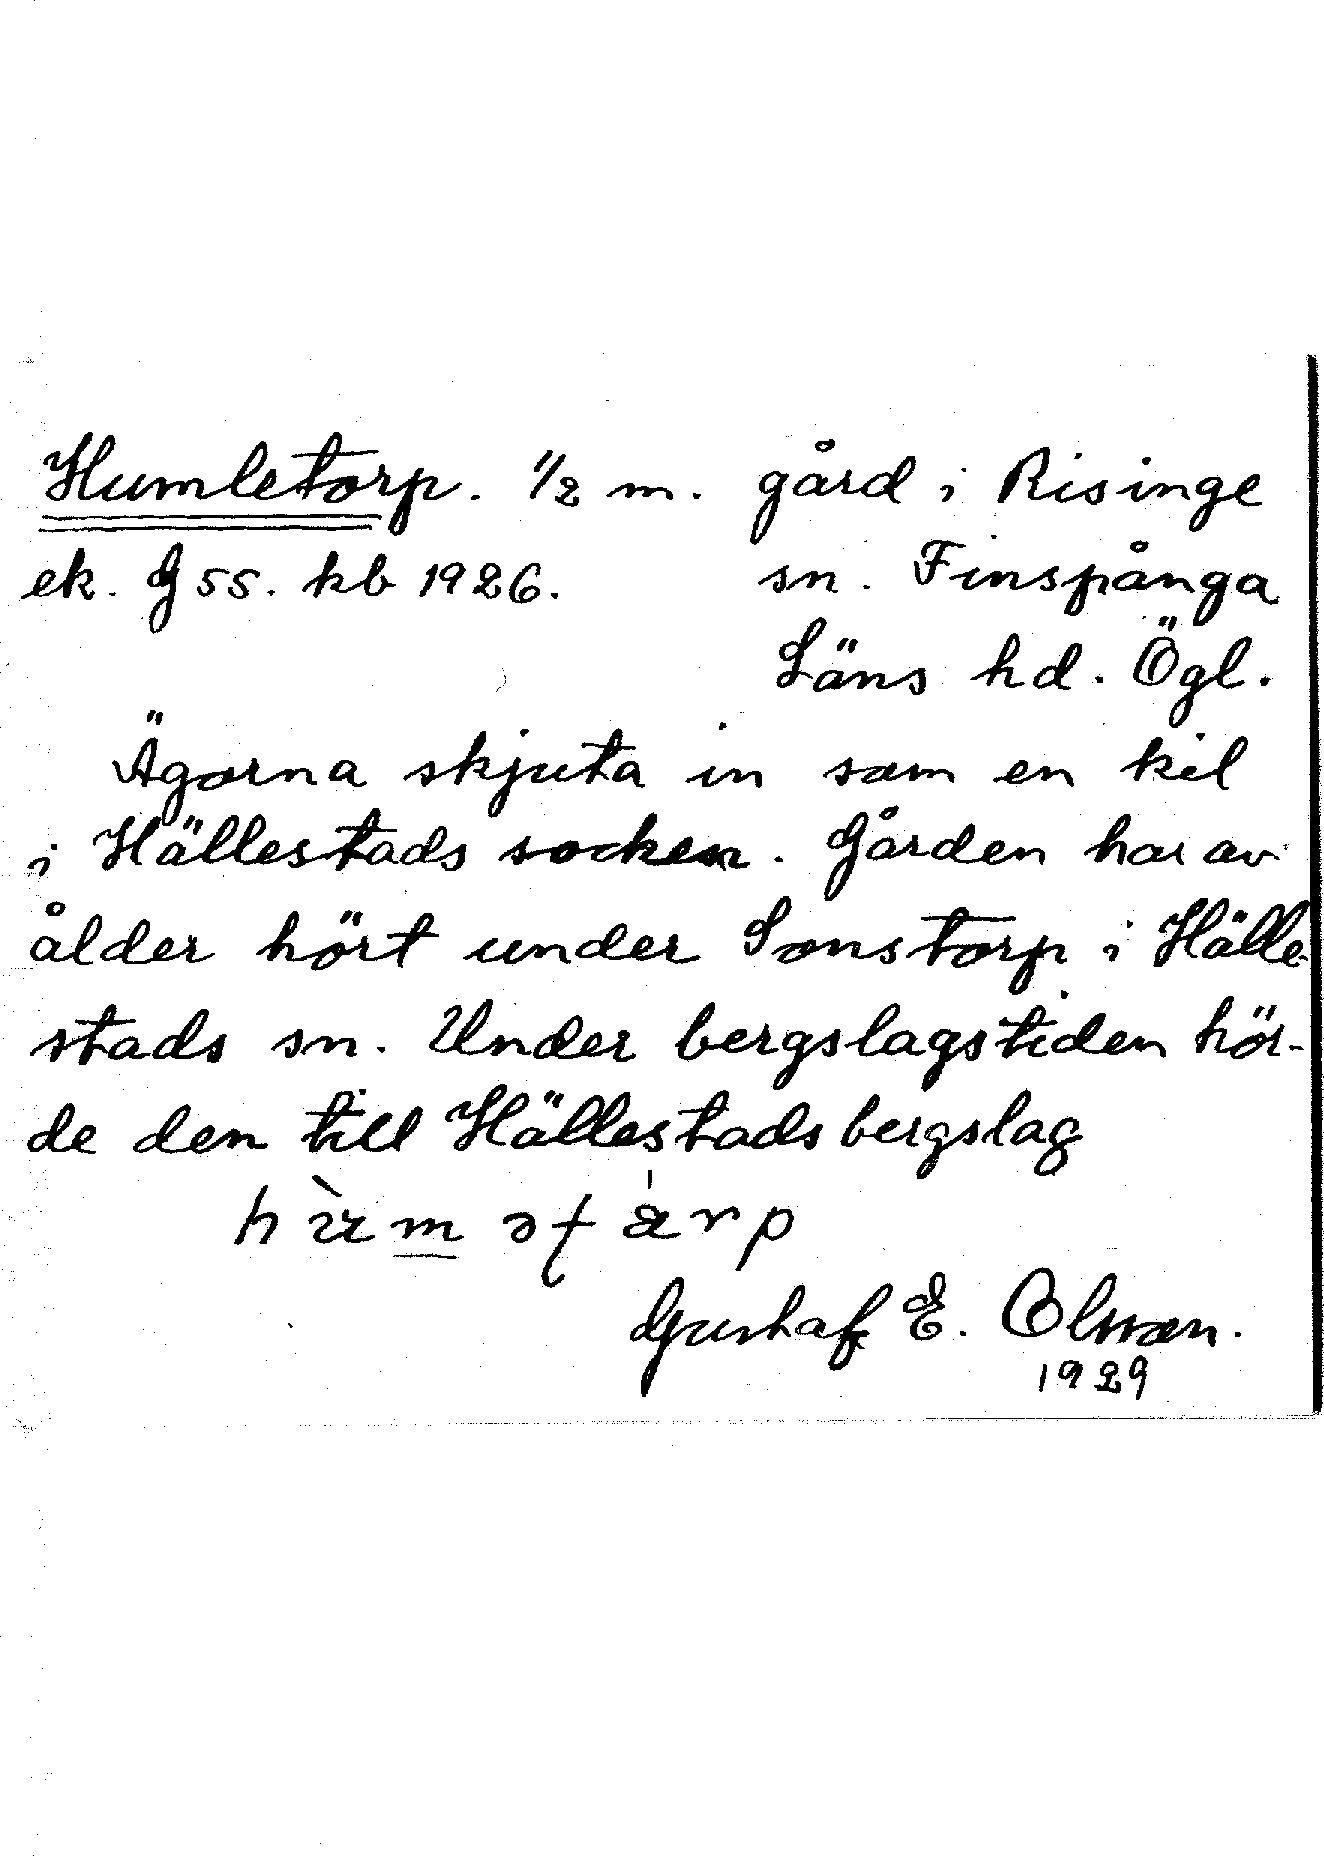 Humletorp. 1/2 m. gård i Risinge
ek. G 55. kb 1926. sn. Finspånga
Läns hd. Ögl.
Ägorna skjuta in som en kil
i Hällestads socken. Gården har av
ålder hört under Sonstorp i Hälle-
stads sn. Under bergslagstiden hör-
de den till Hällestads bergslag
Gustaf E. Olsson.
1929